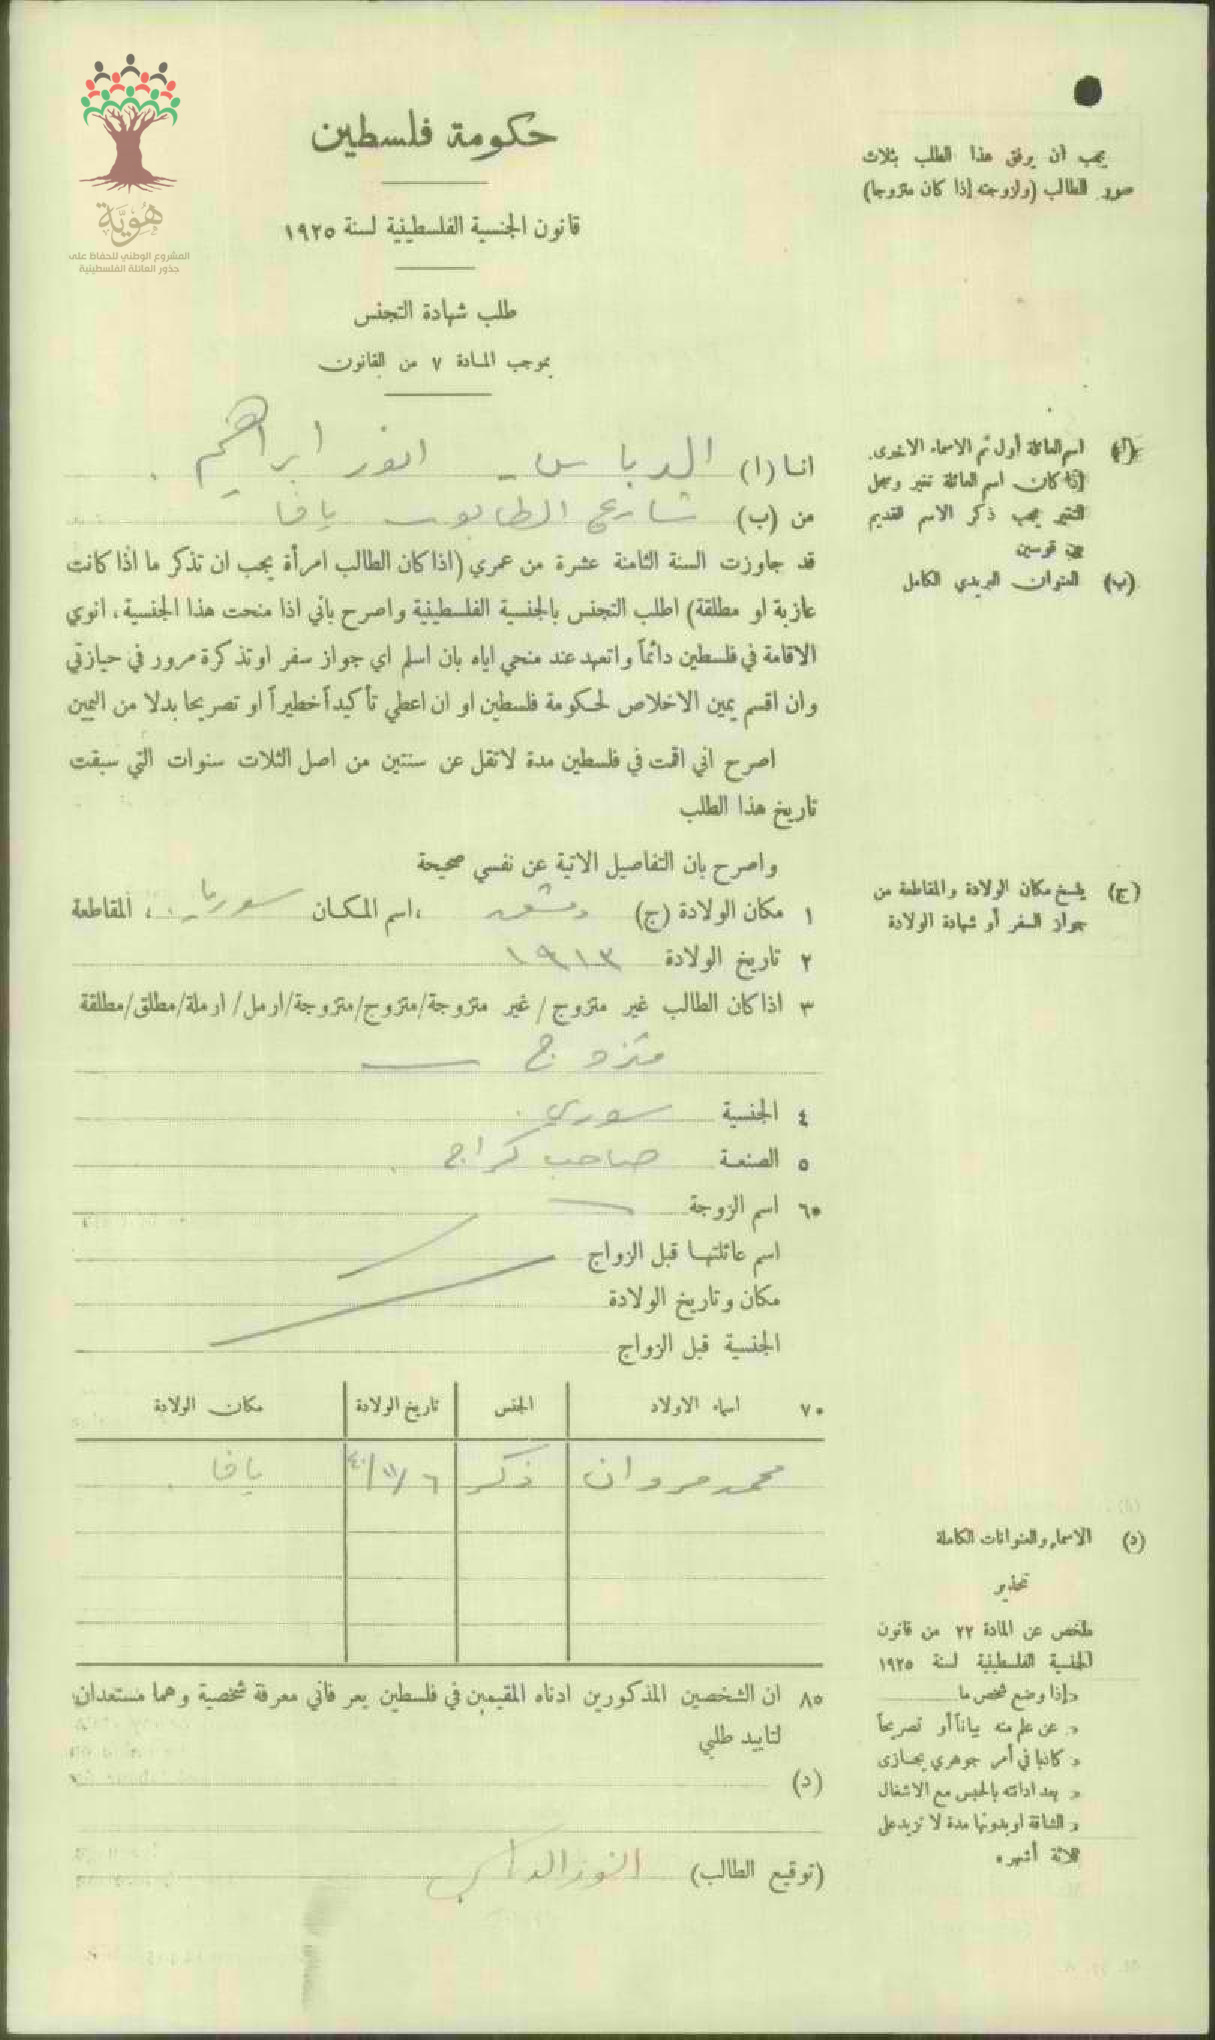 هُويَّة
المشروع الوطني للحفاظ على
جذور العائلة الفلسطينية
يجب ان يرفق هذا الطلب بثلاث
صور الطالب (ولزوجته إذا كان متزوجا)
حكومة فلسطين
قانون الجنسية الفلسطينية لسنة ١٩٢٥
طلب شهادة التجنس
بموجب المادة ٧ من القانون
(أ) اسم العائلة أول ثم الاسماء الاخرى.
إذا كان اسم العائلة تغير وسجل
التغير يجب ذكر الاسم القديم
بين قوسين
(ب) العنوان البريدي الكامل
انا (ا) الدباس - انور ابراهيم
من (ب) شارع الطابو يافا
قد جاوزت السنة الثامنة عشرة من عمري (اذا كان الطالب امرأة يجب ان تذكر ما اذا كانت
عازبة او مطلقة) اطلب التجنس بالجنسية الفلسطينية واصرح باني اذا منحت هذا الجنسية، انوي
الاقامة في فلسطين دائماً واتعهد عند منحي اياه بان اسلم اي جواز سفر او تذكرة مرور في حيازتي
وان اقسم يمين الاخلاص لحكومة فلسطين او ان اعطي تأكيداً خطيراً او تصريحا بدلا من اليمين
اصرح اني اقمت في فلسطين مدة لا تقل عن سنتين من اصل الثلاث سنوات التي سبقت
تاريخ هذا الطلب
واصرح بان التفاصيل الاتية عن نفسي صحيحة
(ج) ينسخ مكان الولادة والمقاطعة من
جواز السفر أو شهادة الولادة
١ مكان الولادة (ج) دمشق ، اسم المكان سوريا ، المقاطعة
٢ تاريخ الولادة ١٩١٣
٣ اذا كان الطالب غير متزوج / غير متزوجة/متزوج/متزوجة/ارمل/ ارملة/مطلق/مطلقة
متزوج
٤ الجنسية سوري
٥ الصنعة صاحب كراج
٦* اسم الزوجة
اسم عائلتها قبل الزواج
مكان وتاريخ الولادة
الجنسية قبل الزواج
٧* اسماء الاولاد الجنس تاريخ الولادة مكان الولادة
محمد مروان ذكر ٦/١١/٤٠ يافا
(د) الاسماء والعنوانات الكاملة
تحذير
ملخص عن المادة ٢٢ من قانون
الجنسية الفلسطينية لسنة ١٩٢٥
« إذا وضع شخص ما
« عن علم منه بياناً أو تصريحاً
« كاذبا في أمر جوهري يجازى
« بعد ادانته بالحبس مع الاشغال
« الشاقة او بدونها مدة لا تزيد على
ثلاثة أشهر»
٨* ان الشخصين المذكورين ادناه المقيمين في فلسطين يعرفاني معرفة شخصية وهما مستعدان
لتاييد طلبي
(د)
(توقيع الطالب) انور الدباس